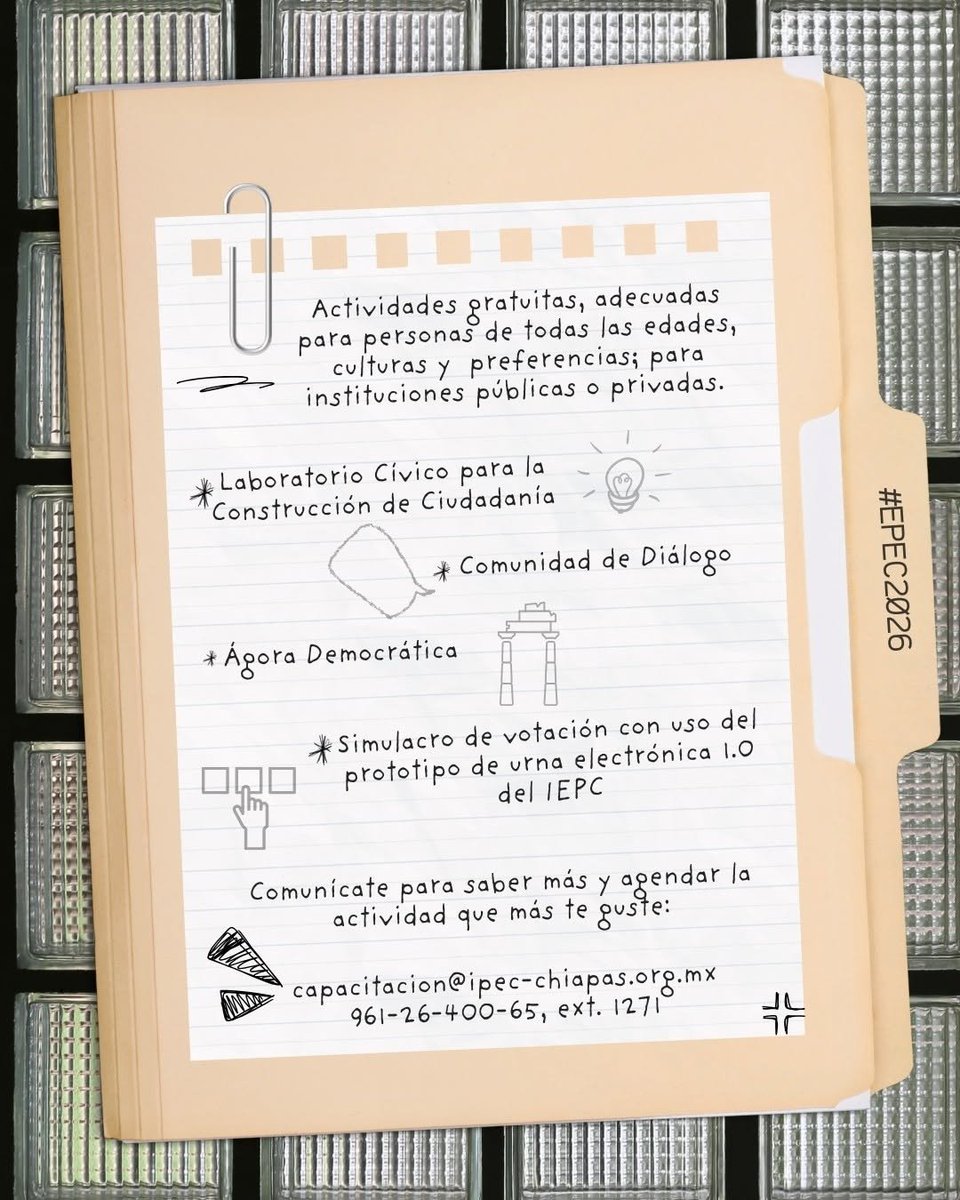 Actividades gratuitas, adecuadas
para personas de todas las edades,
culturas y preferencias; para
instituciones públicas o privadas.
Laboratorio Cívico para la
Construcción de Ciudadanía
Comunidad de Diálogo
Ágora Democrática
Simulacro de votación con uso del
prototipo de urna electrónica 1.0
del IEPC
Comunícate para saber más y agendar la
actividad que más te guste:
capacitacion@ipec-chiapas.org.mx
961-26-400-65, ext. 1271
#EPEC2026